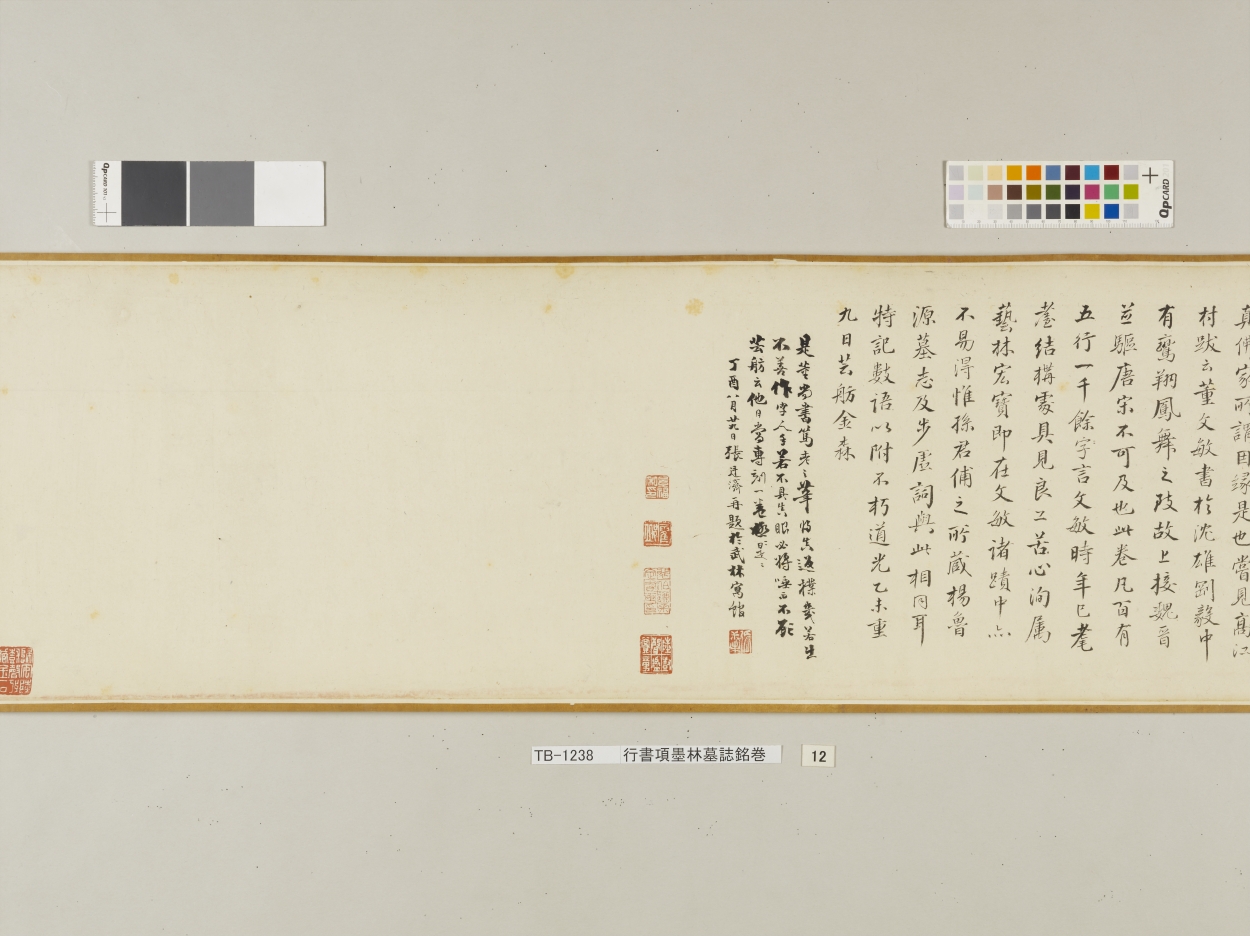 真佛家所謂因緣是也嘗見高江
村跋云董文敏書於沈雄劉毅中
有鸞翔鳳舞之致故上接魏晋
並驅唐宋不可及也此卷凡百有
五行一千餘字言文敏時年已耄
耋結構處具見良工苦心洵属
藝林宏寶即在文敏諸蹟中亦
不易得惟孫君甫之所蔵楊魯
源墓志及步虛詞與此相同耳
特記數語以附不朽道光乙未重
九日芸舫金森
是董尚書篤老之筆
不善作字人手若不具眼必將唾
芸舫云他日當專刻一卷
丁酉八月廿九日張廷濟再題於武林寓館
TB-1238 行書項墨林墓誌銘巻 12
QPCARD 101
QPCARD